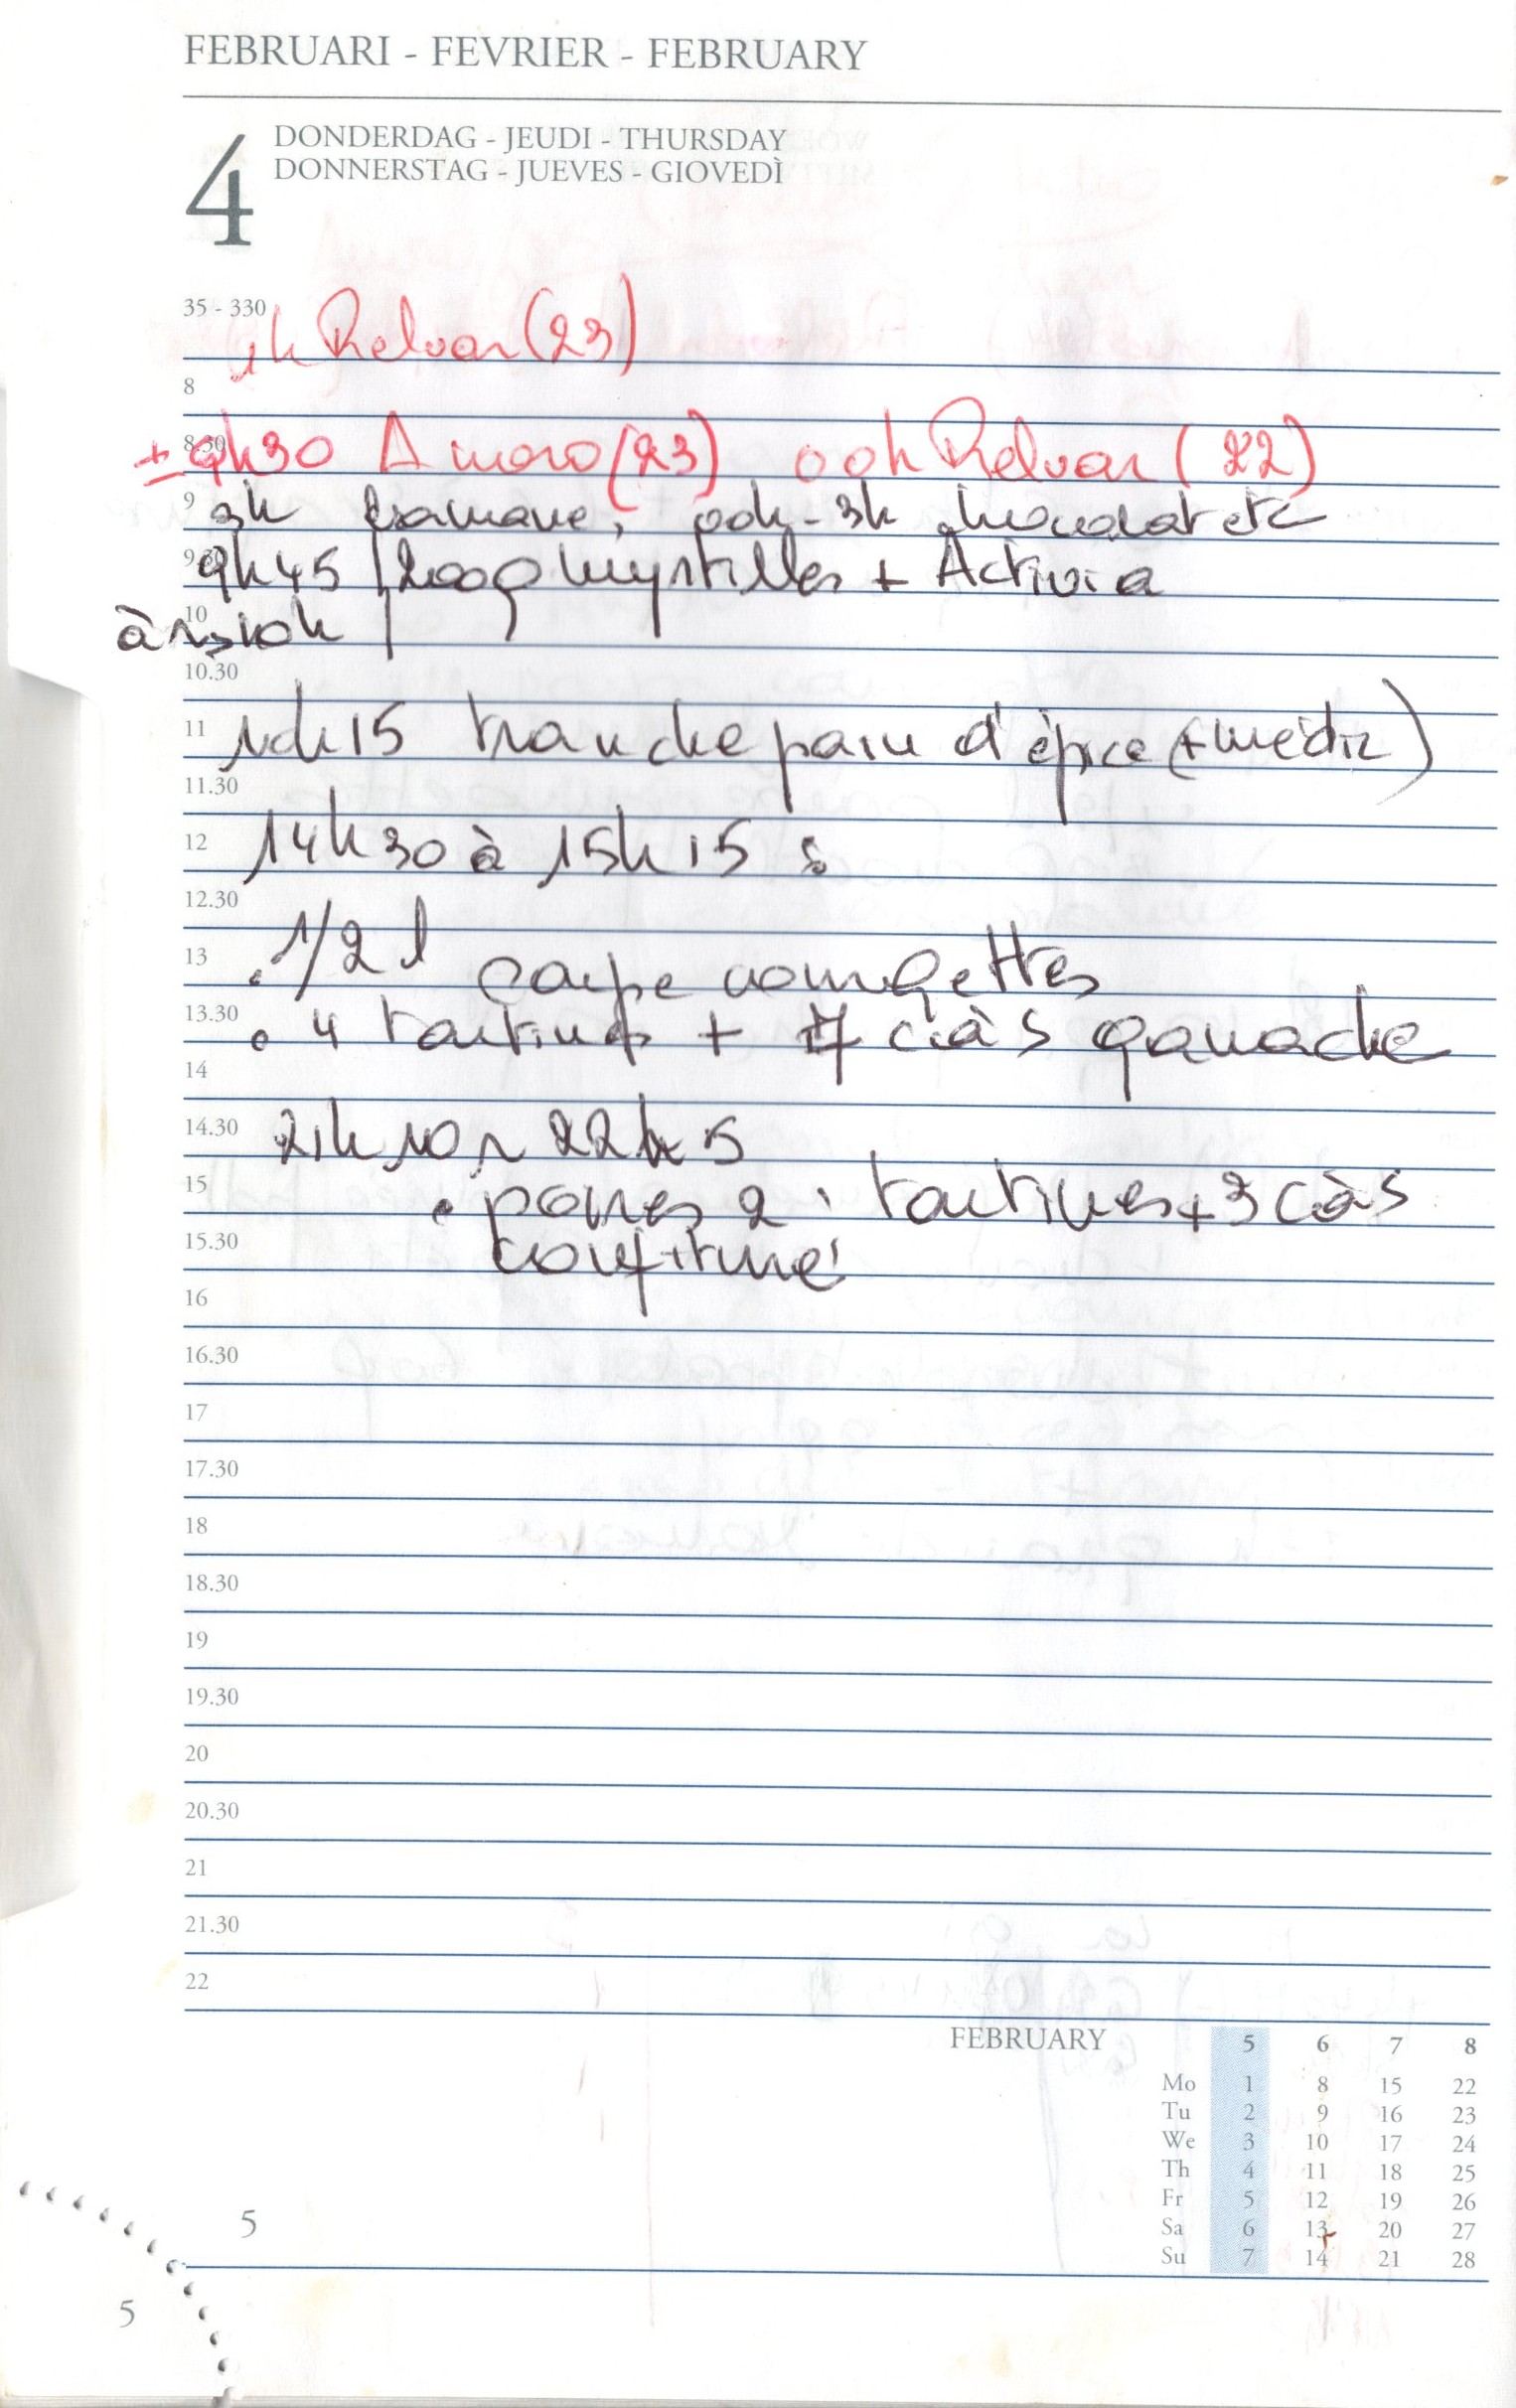 FEBRUARI - FEVRIER - FEBRUARY
4
DONDERDAG - JEUDI - THURSDAY
DONNERSTAG - JUEVES - GIOVEDÌ
35 - 330
1h Relvar (23)
8
8.30
± 9h30 Amoro (23) 00h Relvar (22)
9
3h banane, 00h-3h chocolat etc
9.30
9h45 200g myrtilles + Activia
10
à 10h
10.30
11
11h15 tranche pain d'épice (+ médic)
11.30
12
14h30 à 15h15 :
12.30
13
. 1/2 l soupe courgettes
13.30
. 4 tartines + 7 c à S ganache
14
14.30
21h10 22h 5
15
. poires 2 tartines + 3 c à s
15.30
confiture
16
16.30
17
17.30
18
18.30
19
19.30
20
20.30
21
21.30
22
FEBRUARY 5 6 7 8
Mo 1 8 15 22
Tu 2 9 16 23
We 3 10 17 24
Th 4 11 18 25
Fr 5 12 19 26
Sa 6 13 20 27
Su 7 14 21 28
5
5